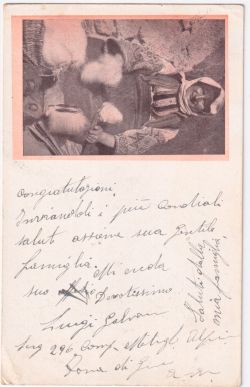 Congratulazioni.
Inviandoli i più cordiali
saluti assieme sua Gentile
famiglia. Mi creda
suo Devotissimo
Luigi
Serg 296 Comp
Zona di
Saluti dalla
mia famiglia